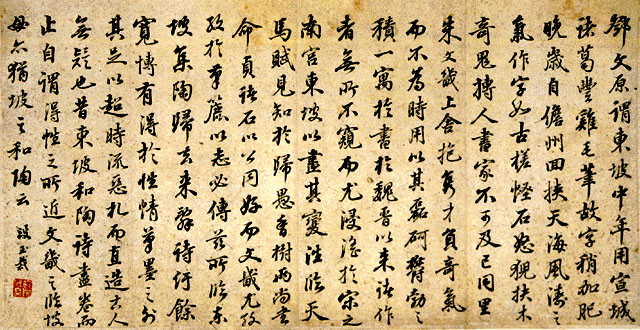 鄧文原謂東坡中年用宣城
諸葛豐雞毛筆故字稍加肥
晚歲自儋州回挾天海風濤之
氣作字如古槎怪石怒猊扶木
奇鬼搏人書家不可及已同里
朱文上舍抱才負奇氣
而不為時用以其磊砢鬱勃之
積一寓於書於魏晉以來諸作
者無所不窺而尤浸淫於宋之
南宮東坡以盡其變法臨天
馬賦見知於歸愚香樹兩尚書
命貞諸石以公同好而文尤孜
孜於以志必傳茲所臨東
坡集陶歸去來辭詩行餘
寬博有得於性情筆墨之外
其足以超時流惡札而直造古人
無疑也昔東坡和陶詩盡卷而
止自謂得性之所近文之臨坡
毋亦猶坡之和陶云 段玉裁